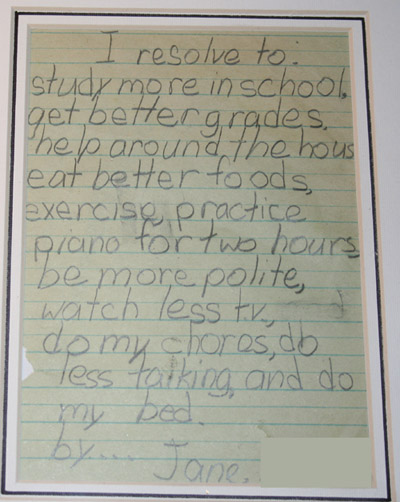 I resolve to:
study more in school,
get better grades,
help around the hous
eat better foods,
exercise, practice
piano for two hours,
be more polite,
watch less tv,
do my chores, do
less talking, and do
my bed.
by... Jane.